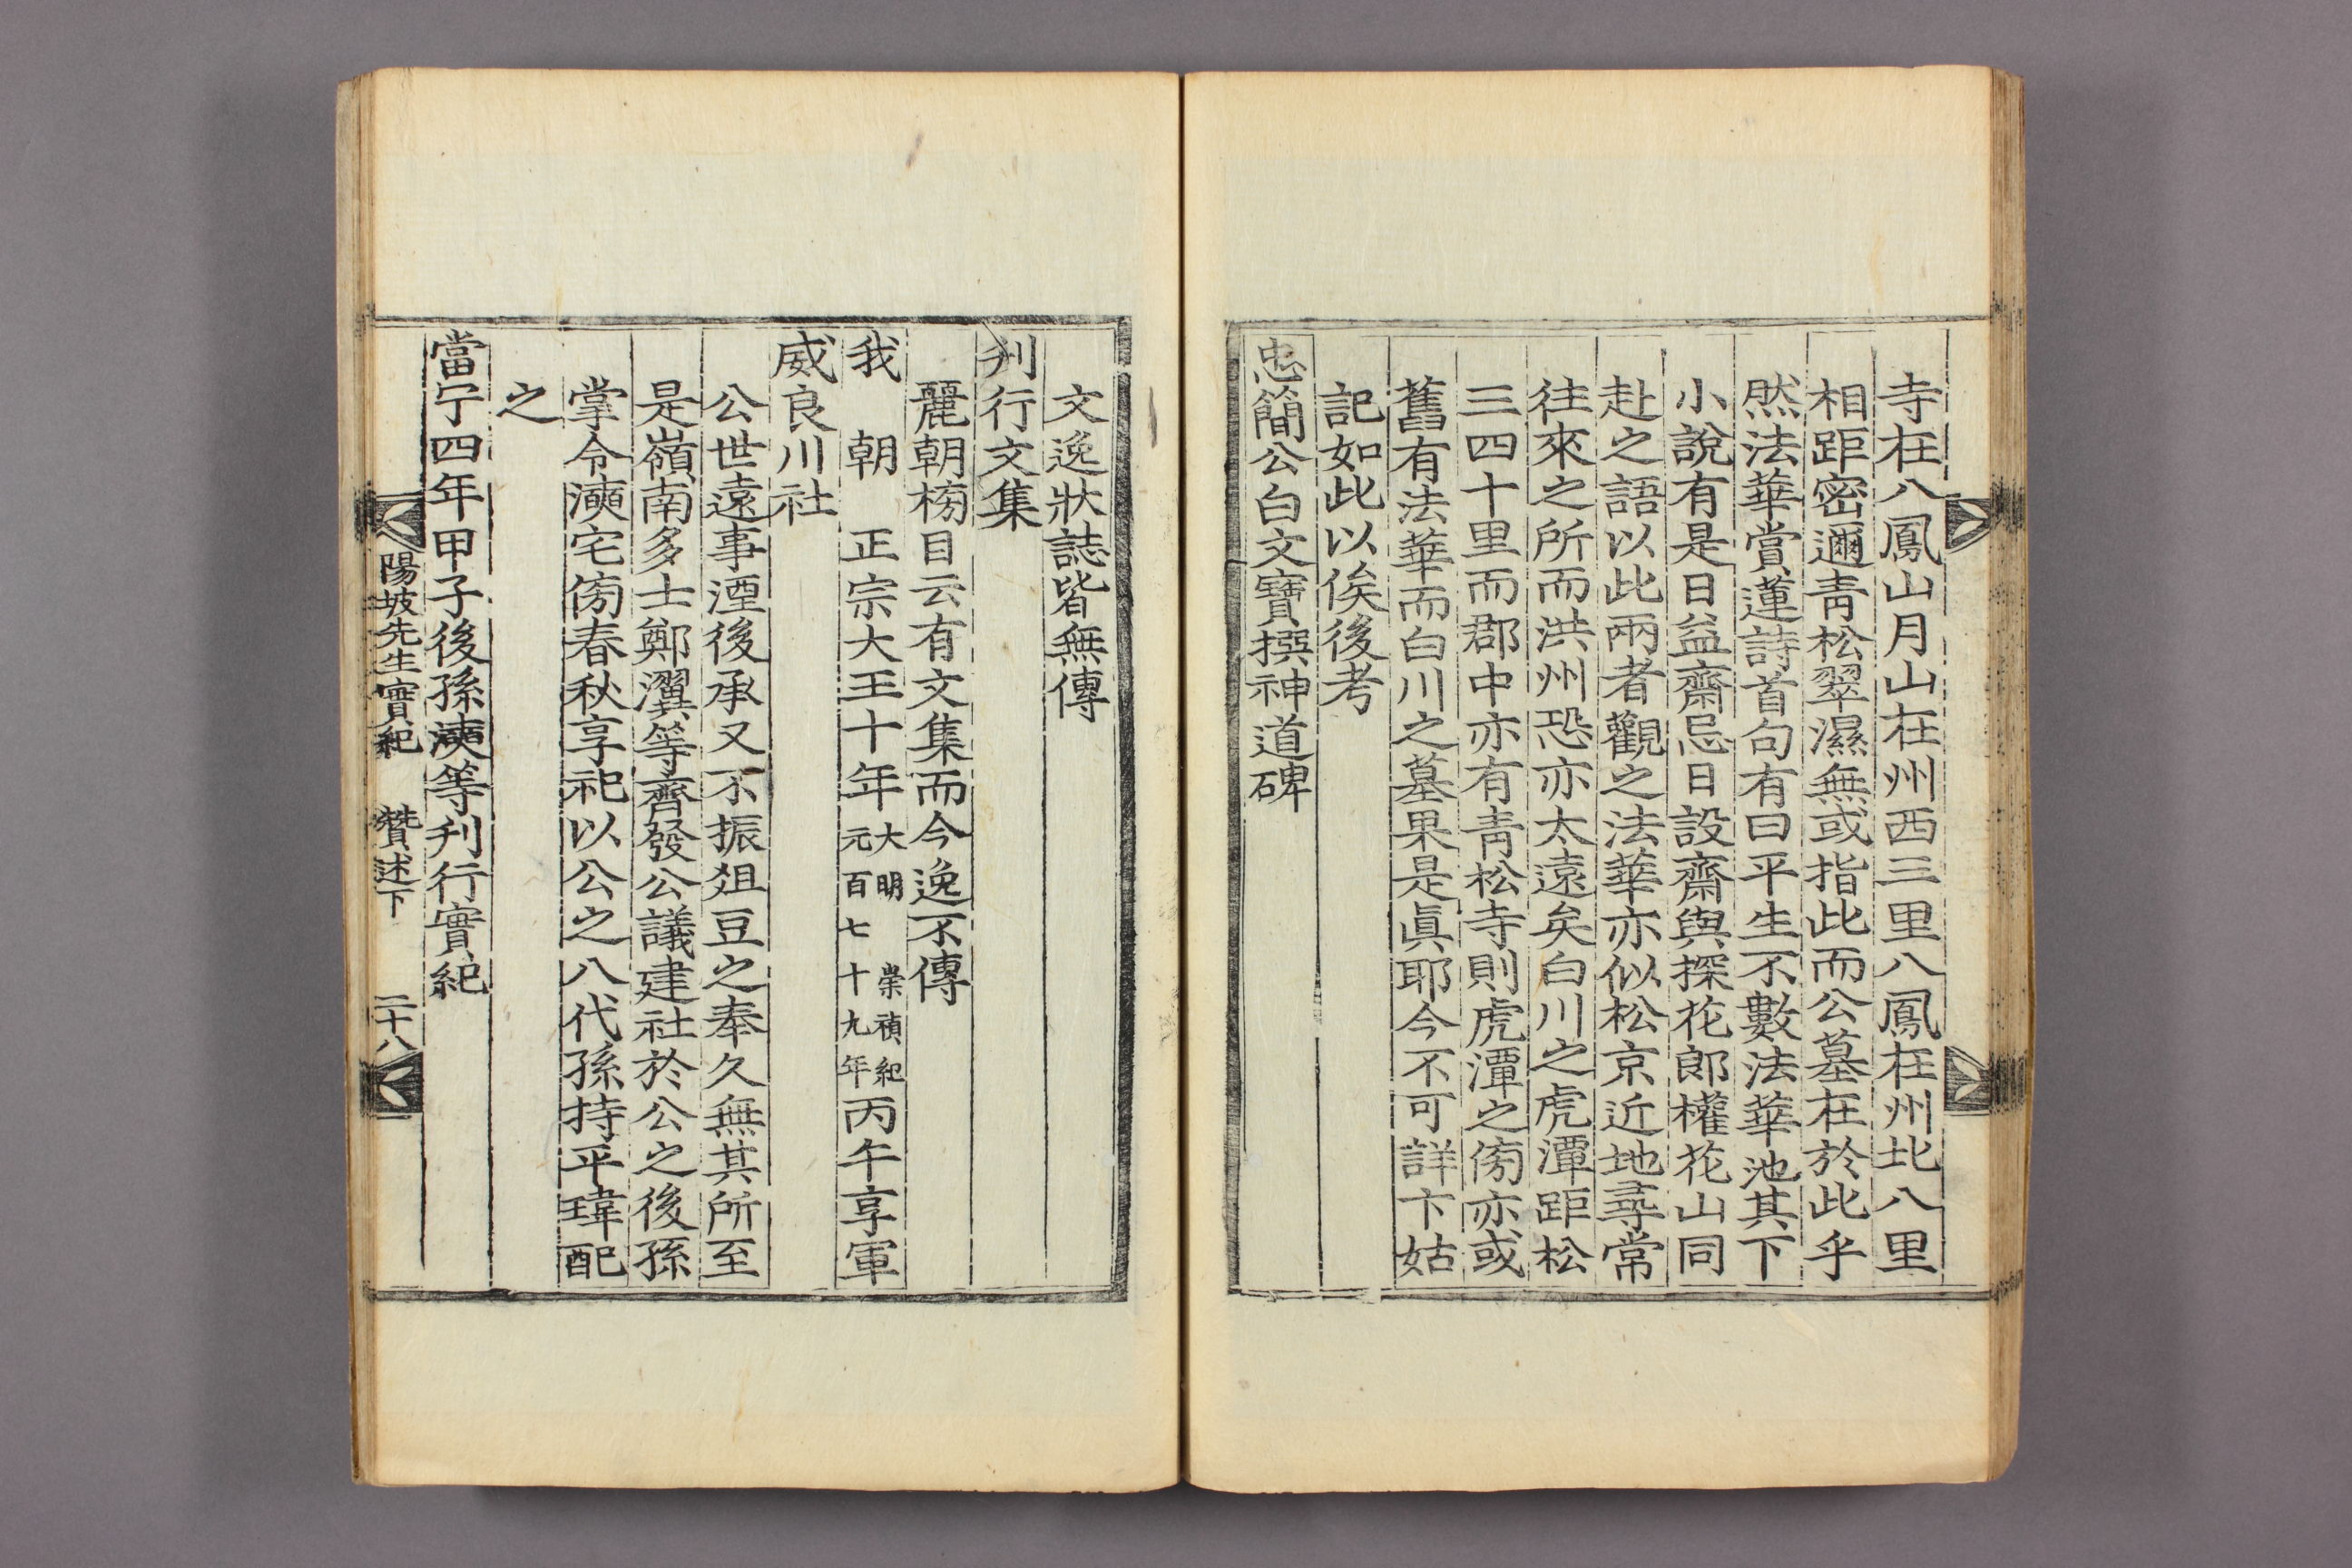 寺在八鳳山月山在州西三里八鳳在州北八里
相距密邇靑松翠濕無或指此而公墓在於此乎
然法華賞蓮詩首句有曰平生不數法華池其下
小說有是日益齋忌日設齋與探花郞權花山同
赴之語以此兩者觀之法華亦似松京近地尋常
往來之所而洪州恐亦太遠矣白川之虎潭距松
三四十里而郡中亦有靑松寺則虎潭之傍亦或
舊有法華而白川之墓果是眞耶今不可詳卞姑
記如此以俟後考
忠簡公白文寶撰神道碑
文逸狀誌皆無傳
刋行文集
麗朝榜目云有文集而今逸不傳
我朝正宗大王十年大明崇禎紀元百七十九年丙午享軍
威良川社
公世遠事湮後承又不振俎豆之奉久無其所至
是嶺南多士鄭瀷等齊發公議建社於公之後孫
掌令宅傍春秋享祀以公之八代孫持平瑋配
之
當宁四年甲子後孫等刋行實紀
陽坡先生實紀 贊述下 二十八